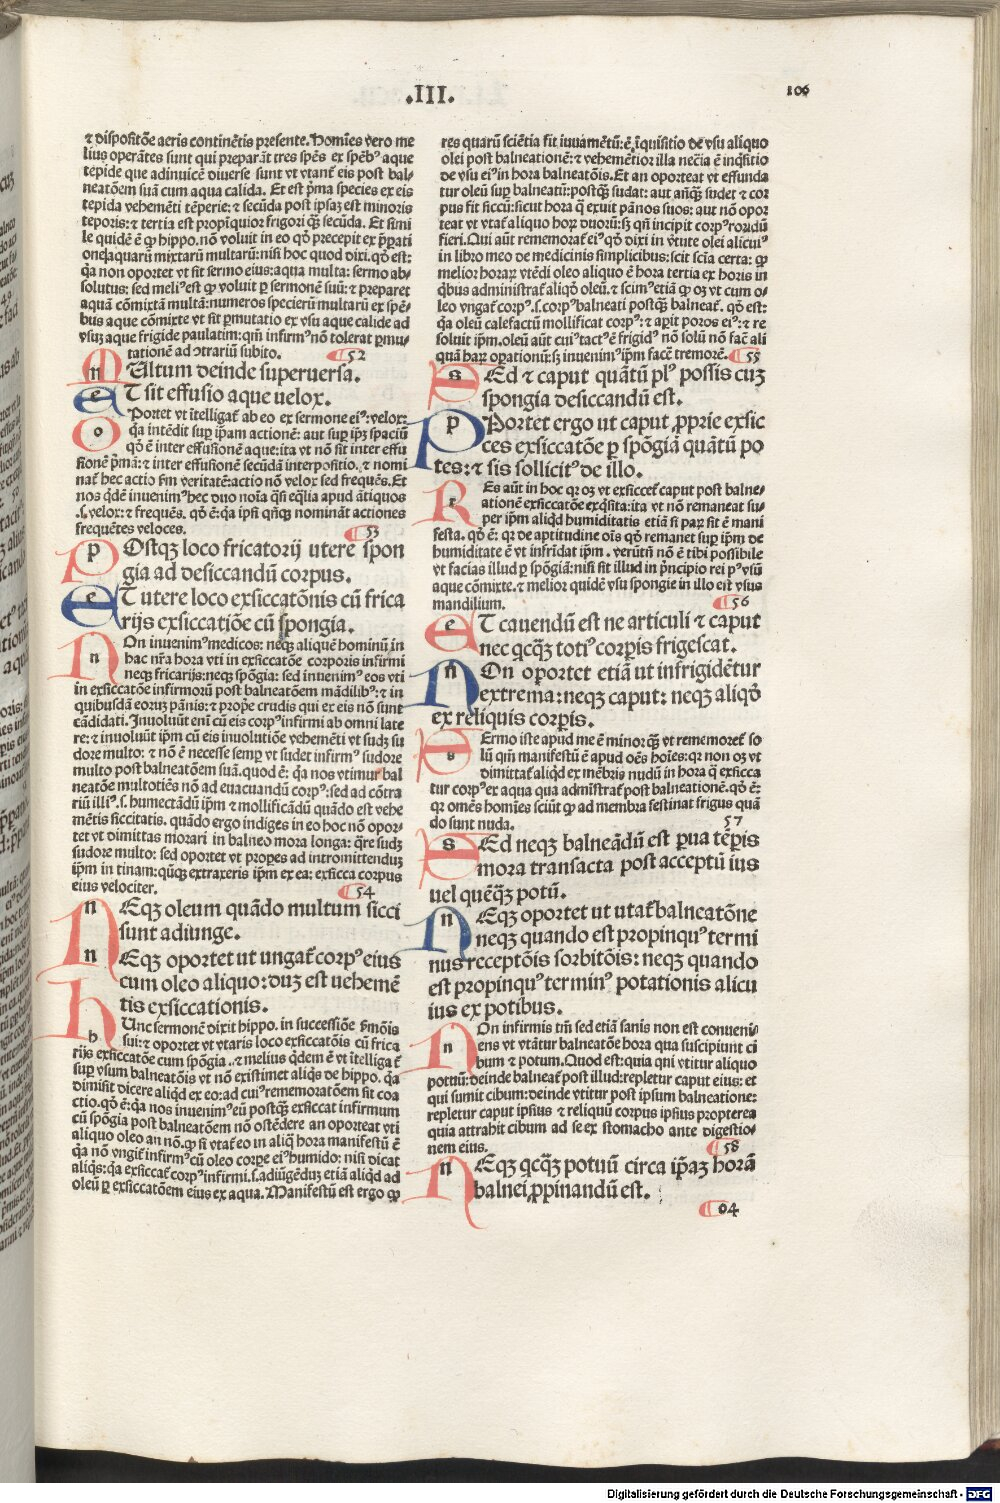 .III.
106
⁊ dispositõe aeris continẽtis presente. Homĩes vero me
lius operãtes sunt qui preparãt tres spẽs ex spẽbꝰ aque
tepide que adinuicẽ diuerse sunt vt vtant̃ eis post bal-
neatõem suã cum aqua calida. Et est p̃ma species ex eis
tepida vehemẽti tẽperie: ⁊ secũda post ipsaꝫ est minoris
teporis: ⁊ tertia est propĩquior frigori qꝫ secũda. Et simi
le quidẽ ẽ ꝙ hippo. nõ voluit in eo qđ precepit ex p̃pati
one aquarũ mixtarũ multarũ: nisi hoc quod dixi. qđ est:
q̃a non oportet vt sit sermo eius: aqua multa: sermo ab-
solutus: sed meliꝰ est ꝙ voluit ꝑ sermonẽ suũ: ⁊ preparet
aquã cõmixtã multã: numeros specierũ multarũ ex spẽ-
bus aque cõmixte vt sit ꝑmutatio ex vsu aque calide ad
vsuꝫ aque frigide paulatim: qm̃ infirmꝰ nõ tolerat ꝑmu-
tationẽ ad ↄ̃trariũ subito. ¶52
n Ultum deinde superuersa.
e T sit effusio aque uelox.
o Portet vt ĩtelligat̃ ab eo ex sermone eiꝰ: velox:
q̃a intẽdit suꝑ ip̃am actionẽ: aut suꝑ ip̃ꝫ spaciũ
qđ ẽ inter effusionẽ aque: ita vt nõ sit inter effu
sionẽ p̃mã: ⁊ inter effusionẽ secũdã interpositio. ⁊ nomi
nat̃ hec actio ẽm veritatẽ: actio nõ velox sed frequẽs. Et
nos qđẽ inuenimꝰ hec duo noĩa q̃si eq̃lia apud ãtiquos
.s. velox: ⁊ frequẽs. qđ ẽ: q̃a ipsi qñqꝫ nominãt actiones
frequẽtes veloces. ¶53
p Ostqꝫ loco fricatorij utere spon
gia ad desiccandũ corpus.
e T utere loco exsiccatõnis cũ frica
rijs exsiccatiõe cũ spongia.
n On inuenimꝰ medicos: neqꝫ aliquẽ hominũ in
hac nr̃a hora vti in exsiccatõe corporis infirmi
neqꝫ fricarijs: neqꝫ spõgia: sed inuenimꝰ eos vti
in exsiccatõe infirmorũ post balneatõem mãdilibꝰ: ⁊ in
quibusdã eoruꝫ pãnis: ⁊ prop̃e crudis qui ex eis nõ sunt
cãdidati. Inuoluũt enĩ cũ eis corpꝰ infirmi ab omni late
re: ⁊ inuoluũt ip̃m cũ eis inuolutiõe vehemẽti vt sudꝫ su
dore multo: ⁊ nõ ẽ necesse semꝑ vt sudet infirmꝰ sudore
multo post balneatõem suã. quod ẽ: q̃a nos vtimur bal
neatõe multotiẽs nõ ad euacuandũ corpꝰ: sed ad cõtra
riũ illiꝰ. s. humectãdũ ip̃m ⁊ mollificãdũ quãdo est vehe
mẽtis siccitatis. quãdo ergo indiges in eo hoc nõ opor-
tet vt dimittas morari in balneo mora longa: q̃re sudꝫ
sudore multo: sed oportet vt propes ad intromittenduꝫ
ip̃m in tinam: qũqꝫ extraxeris ip̃m ex ea: exsicca corpus
eius velociter. ¶54
n Eqꝫ oleum quãdo multum sicci
sunt adiunge.
n Eqꝫ oportet ut ungat̃ corpꝰ eius
cum oleo aliquo: duꝫ est uehemẽ
tis exsiccationis.
h Unc sermonẽ dixit hippo. in successiõe s̃mõis
sui: ⁊ oportet vt vtaris loco exsiccatõis cũ frica
rijs exsiccatõe cum spõgia .. ⁊ melius qđem ẽ vt ĩtelliga t̃
suꝑ vsum balneatõis vt nõ existimet aliqs̃ de hippo. q̃a
dimisit dicere aliqđ ex eo: ad cuiꝰ rememoratõem sit coa
ctio. qđ ẽ: q̃a nos inuenimꝰ eũ postqꝫ exsiccat infirmum
cũ spõgia post balneatõem nõ ostẽdere an oporteat vti
aliquo oleo an nõ. ꝙ si vtat̃ eo in aliq̃ hora manifestũ ẽ
q̃a nõ vngit̃ infirmꝰ cũ oleo corpe eiꝰ humido: nisi dicat
aliqs̃: q̃a exsiccat̃ corpꝰ infirmi. s. adiũgẽduꝫ etiã aliqđ ad
oleũ ꝑ exsiccatõem eius ex aqua. Manifestũ est ergo ꝙ
res quarũ sciẽtia sit iuuamẽtũ: ẽ ĩquisitio de vsu aliquo
olei post balneationẽ: ⁊ vehemẽtior illa nec̃ia ẽ inq̃sitio
de vsu eiꝰ in hora balneatõis. Et an oporteat vt effunda
tur oleũ suꝑ balneatũ: postqꝫ sudat: aut añqꝫ sudet ⁊ cor
pus sit siccũ: sicut hora q̃ exuit pãnos suos: aut nõ opor
teat vt vtat̃ aliquo hoꝝ duorũ: sꝫ qñ incipit corpꝰ roridũ
fieri. Qui aũt rememorat̃ eiꝰ qđ dixi in v̓tute olei alicuiꝰ
in libro meo de medicinis simplicibus: scit sciã certa: ꝙ
melior horaꝝ vtẽdi oleo aliquo ẽ hora tertia ex horis in
qbus administrat̃ aliqđ oleũ. ⁊ scimꝰ etiã ꝙ oꝫ vt cum o-
leo vngat̃ corpꝰ. s. corpꝰ balneati postqꝫ balneat̃. qđ est:
q̃a oleũ calefactũ mollificat corpꝰ: ⁊ aꝑit poros eiꝰ: ⁊ re
soluit ip̃m. oleũ aũt cuiꝰ tactꝰ ẽ frigidꝰ nõ solũ nõ fac̃ ali
quã haꝝ oꝑationũ: sꝫ inuenimꝰ ip̃m facẽ tremorẽ. ¶55
s Ed ⁊ caput quãtũ plꝰ possis cuꝫ
spongia desiccandũ est.
p Portet ergo ut caput ꝓprie exsic
ces exsiccatõe ꝑ spõgiã quãtũ po
tes: ⁊ sis sollicitꝰ de illo.
r Es aũt in hoc qꝛ oꝫ vt exsiccet̃ caput post balne-
ationẽ exsiccatõe exq̃sita: ita vt nõ remaneat su-
per ip̃m aliqđ humiditatis etiã si paꝝ sit ẽ mani
festa. qđ ẽ: qꝛ de aptitudine oĩs qđ remanet suꝑ ip̃m de
humiditate ẽ vt infr̃idat ip̃m. verũtñ nõ ẽ tibi possibile
vt facias illud ꝑ spõgiã: nisi sit illud in p̃ncipio rei pꝰ vsũ
aque cõmixte. ⁊ melior quidẽ vsu spongie in illo est vsus
mandilium. ¶56
e T cauendũ est ne articuli ⁊ caput
nec qcqꝫ totiꝰ corꝑis frigescat.
n On oportet etiã ut infrigidẽtur
extrema: neqꝫ caput: neqꝫ aliqđ
ex reliquis corꝑis.
s Ermo iste apud me ẽ minor qꝫ vt rememoret̃ so
lũ qm̃ manifestũ ẽ apud oẽs hoĩes: qꝛ non oꝫ vt
dimittat̃ aliqđ ex mẽbris nudũ in hora q̃ exsicca
tur corpꝰ ex aqua qua admĩstrat̃ post balneationẽ. qđ ẽ:
qꝛ omẽs homĩes sciũt ꝙ ad membra festinat frigus quã
do sunt nuda. 57
s Ed neqꝫ balneãdũ est ꝑua tẽꝑis
mora transacta post acceptũ ius
uel quẽqꝫ potũ.
n Eqꝫ oportet ut utat̃ balneatõne
neqꝫ quando est propinquꝰ termi
nus receptõis sorbitõis: neqꝫ quando
est propinquꝰ terminꝰ potationis alicu
ius ex potibus.
n On infirmis tm̃ sed etiã sanis non est conueni-
ens vt vtãtur balneatõne hora qua suscipiunt ci
bum ⁊ potum. Quod est: quia qñi vtitur aliquo
potuũ: deinde balneat̃ post illud: repletur caput eius: et
qui sumit cibum: deinde vtitur post ipsum balneatione:
repletur caput ipsius ⁊ reliquũ corpus ipsius propterea
quia attrahit cibum ad se ex stomacho ante digestio-
nem eius. ¶58
n Eqꝫ qcqꝫ potuũ circa ip̃aꝫ horã
balnei ꝓpinandũ est.
¶04
Digitalisierung gefördert durch die Deutsche Forschungsgemeinschaft - DFG